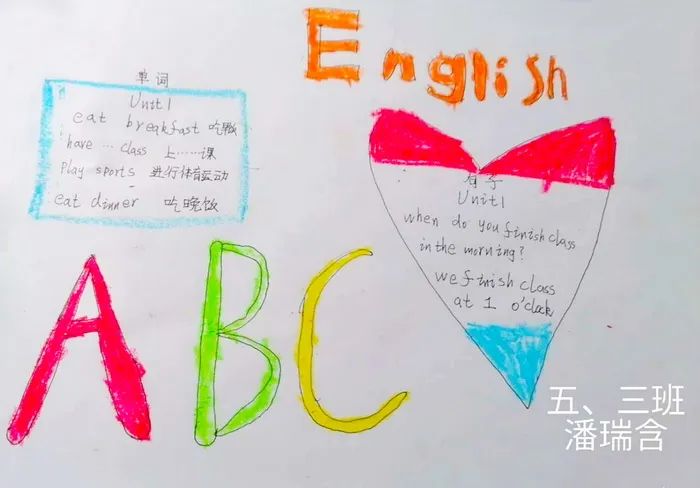 English
单词
Unit1
eat breakfast 吃早饭
have … class 上……课
play sports 进行体育运动
eat dinner 吃晚饭
句子
Unit1
when do you finish class
in the morning?
we finish class
at 1 o'clock
A B C
五、三班
潘瑞含